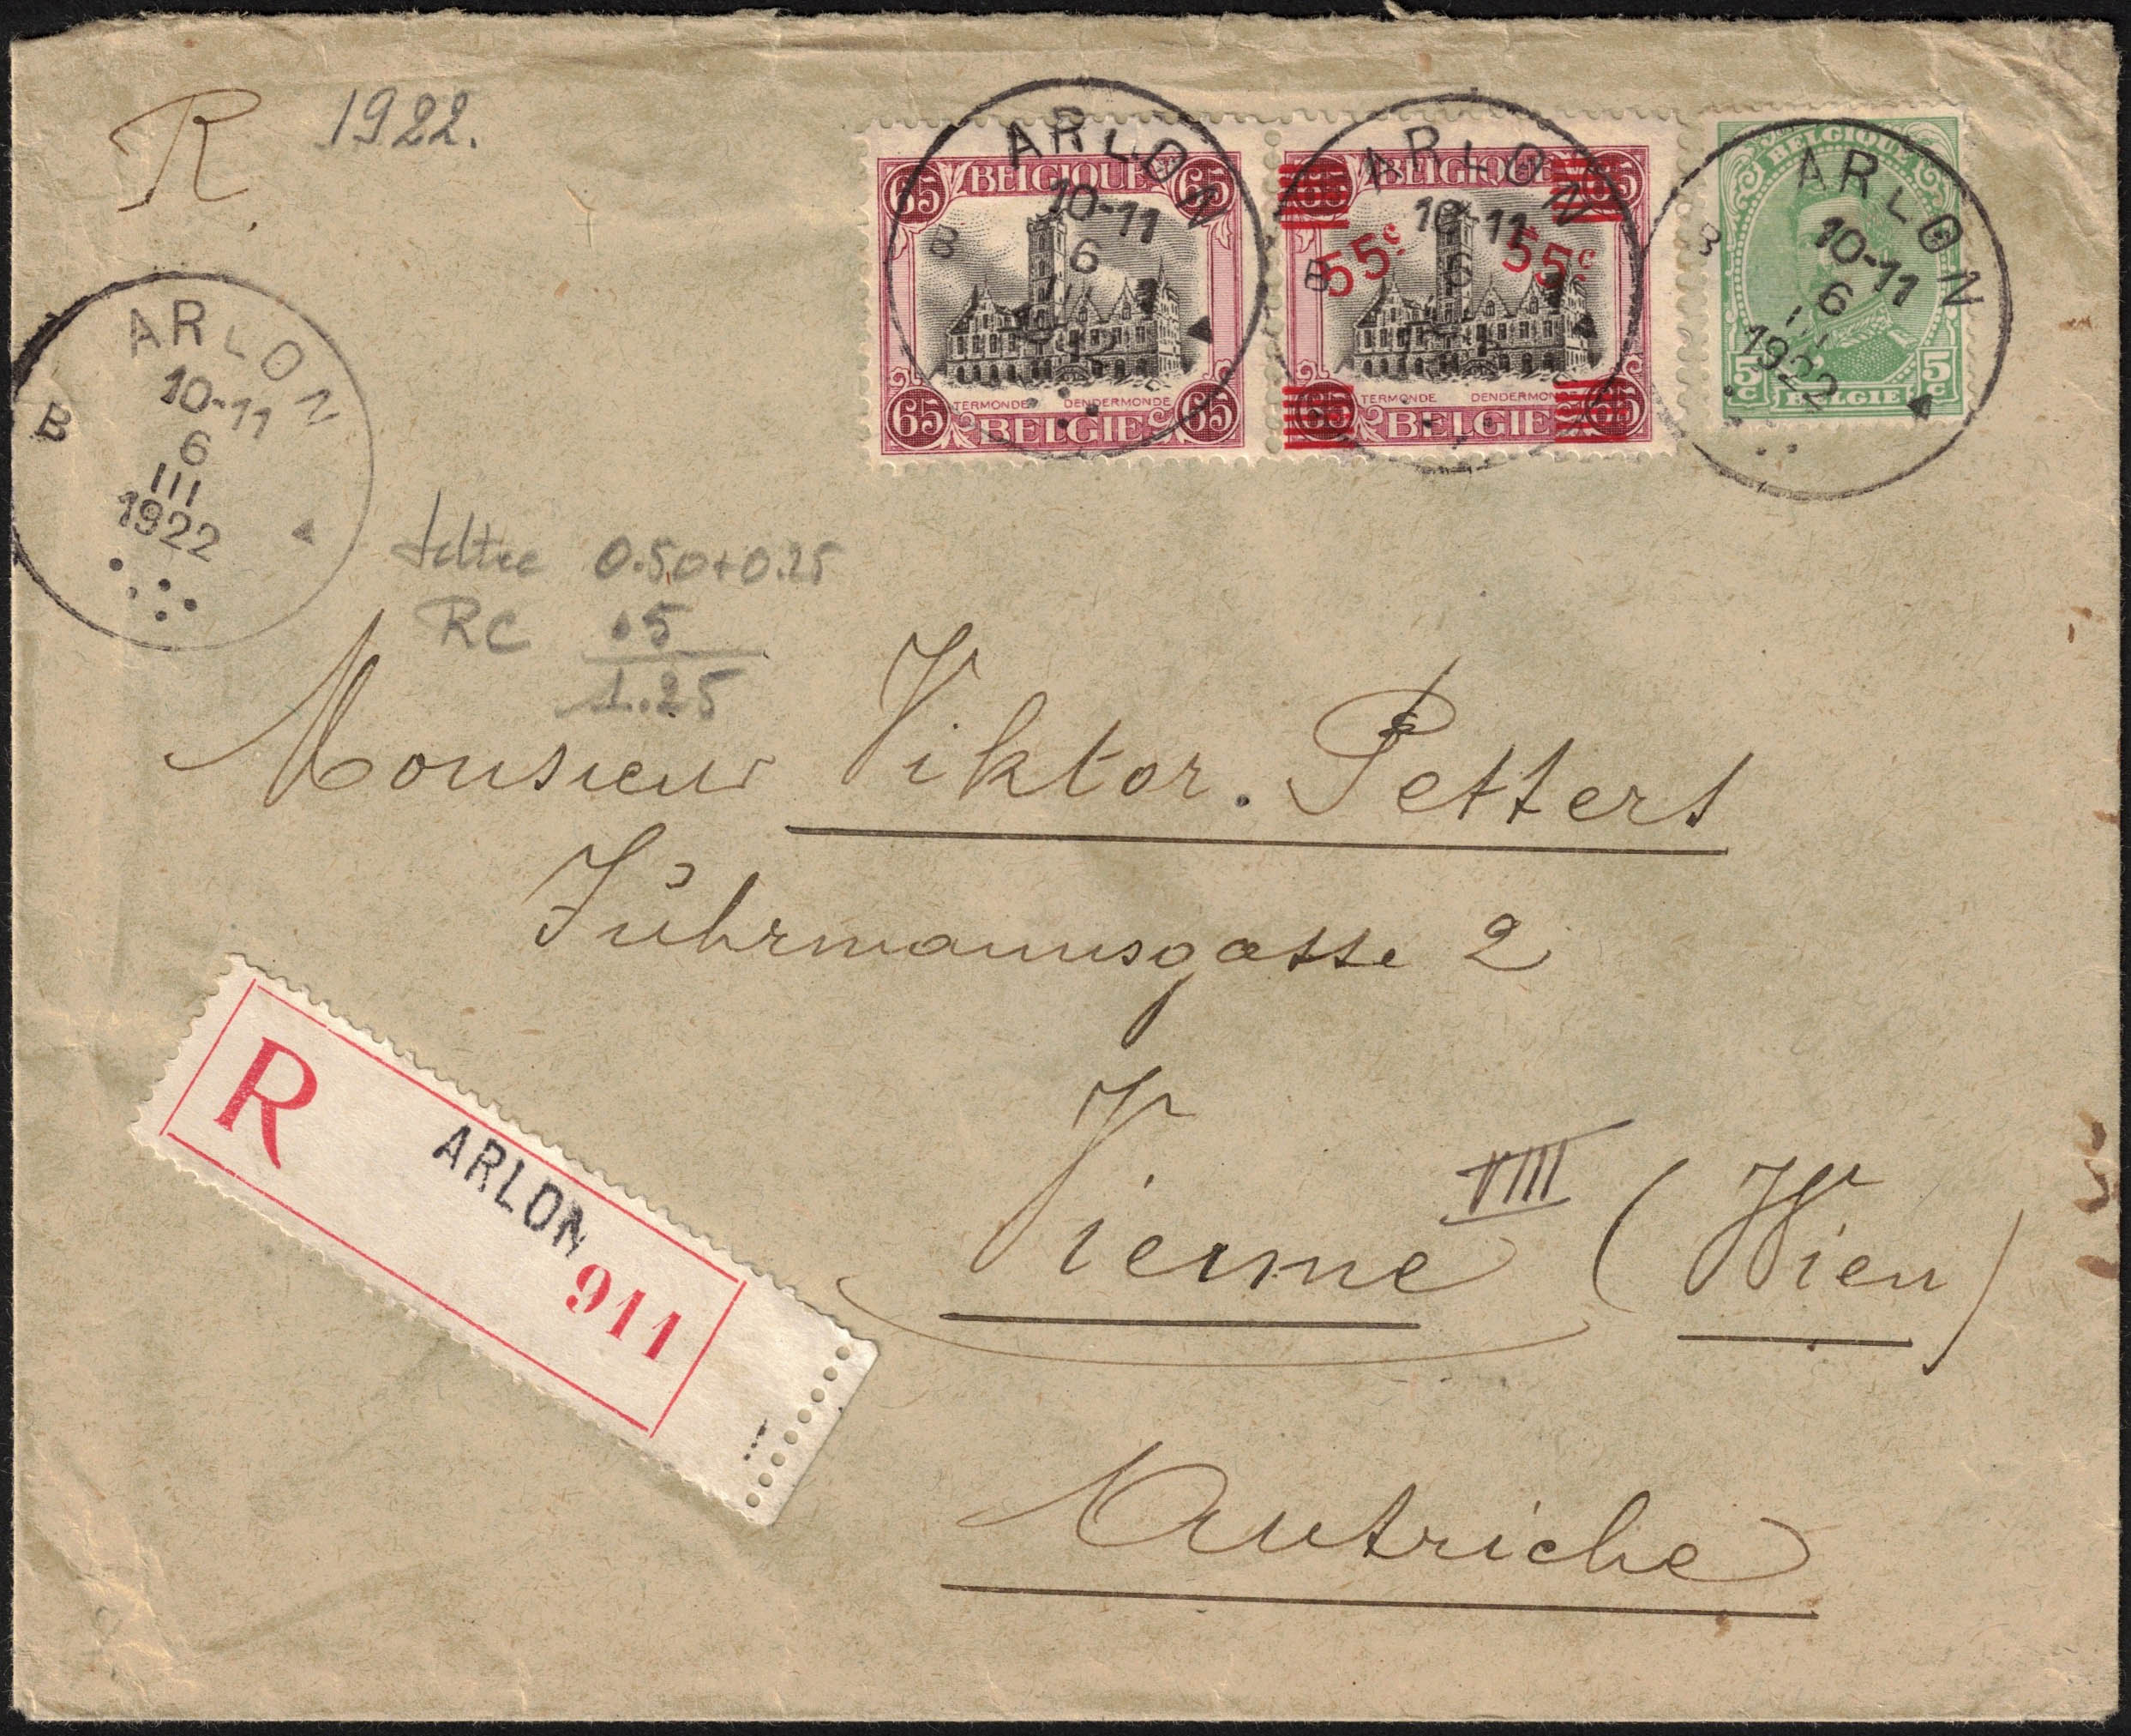 R. 1922.
ARLON
10-11
6
III
1922
B
65 BELGIQUE 65
TERMONDE DENDERMONDE
65 BELGIE 65
ARLON
10-11
6
III
B
65 BELGIQUE 65
55c 55c
TERMONDE DENDERMONDE
65 BELGIE 65
ARLON
10-11
6
B
BELGIQUE
5c BELGIE 5c
ARLON
10-11
6
III
1922
B
0.50+0.25
RC .5
1.25
Monsieur Viktor. Petters
Führmannsgasse 2
Vienne VIII (Wien)
Autriche
R ARLON 911